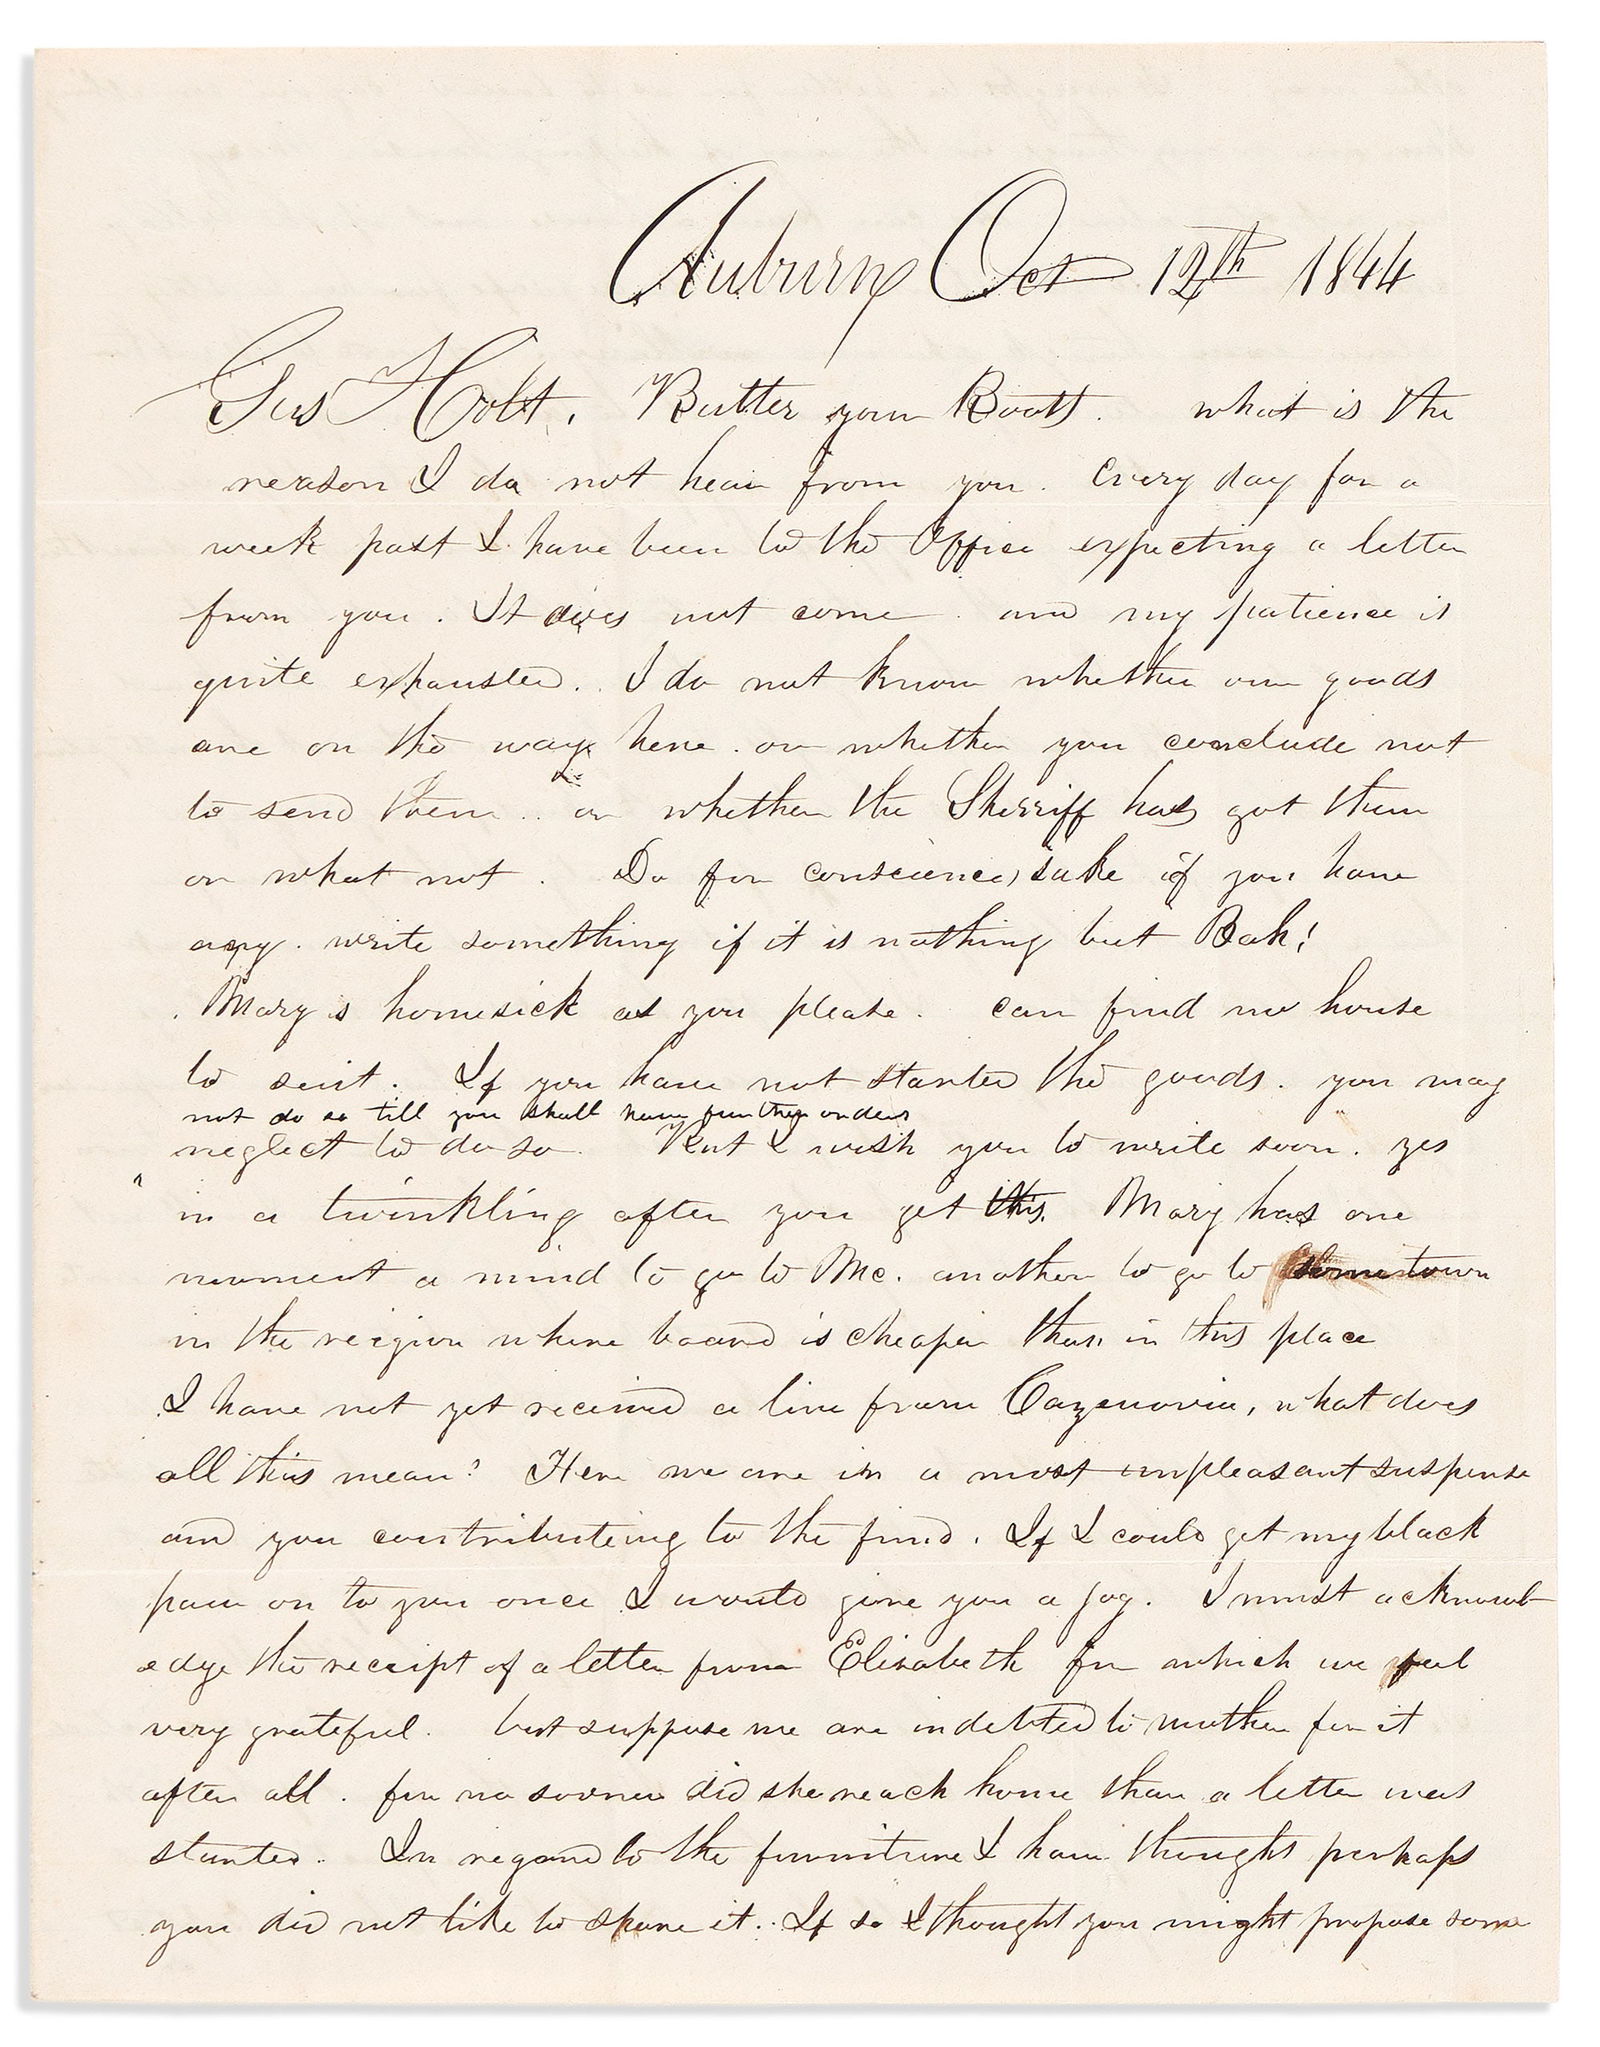 Auburn Oct 12th 1844
Gus Holt. Butter your Boots. what is the
reason I do not hear from you. Every day for a
week past I have been to the Office expecting a letter
from you. It does not come and my patience is
quite exhausted. I do not know whether our goods
are on the way here. or whether you conclude not
to send them. or whether the Sherriff has got them
or what not. Do for conscience, sake if you have
any. write something if it is nothing but Bah!
Mary is homesick as you please. can find no house
to suit. If you have not started the goods. you may
not do so till you shall have further orders
neglect to do so. But I wish you to write soon. yes
in a twinkling after you get this. Mary has one
moment a mind to go to Me. another to go to some town
in the reigion where board is cheaper than in this place
I have not yet received a line from Cazenovia, what does
all this mean? Here we are in a most unpleasant suspense
and you contributing to the fund. If I could get my black
paw on to you once I would give you a jog. I must acknowl-
edge the receipt of a letter from Elisabeth for which we feel
very grateful. but suppose we are indebted to mother for it
after all. for no sooner did she reach home than a letter was
started. In regard to the furniture I have thought perhaps
you did not like to spare it. If so I thought you might propose some